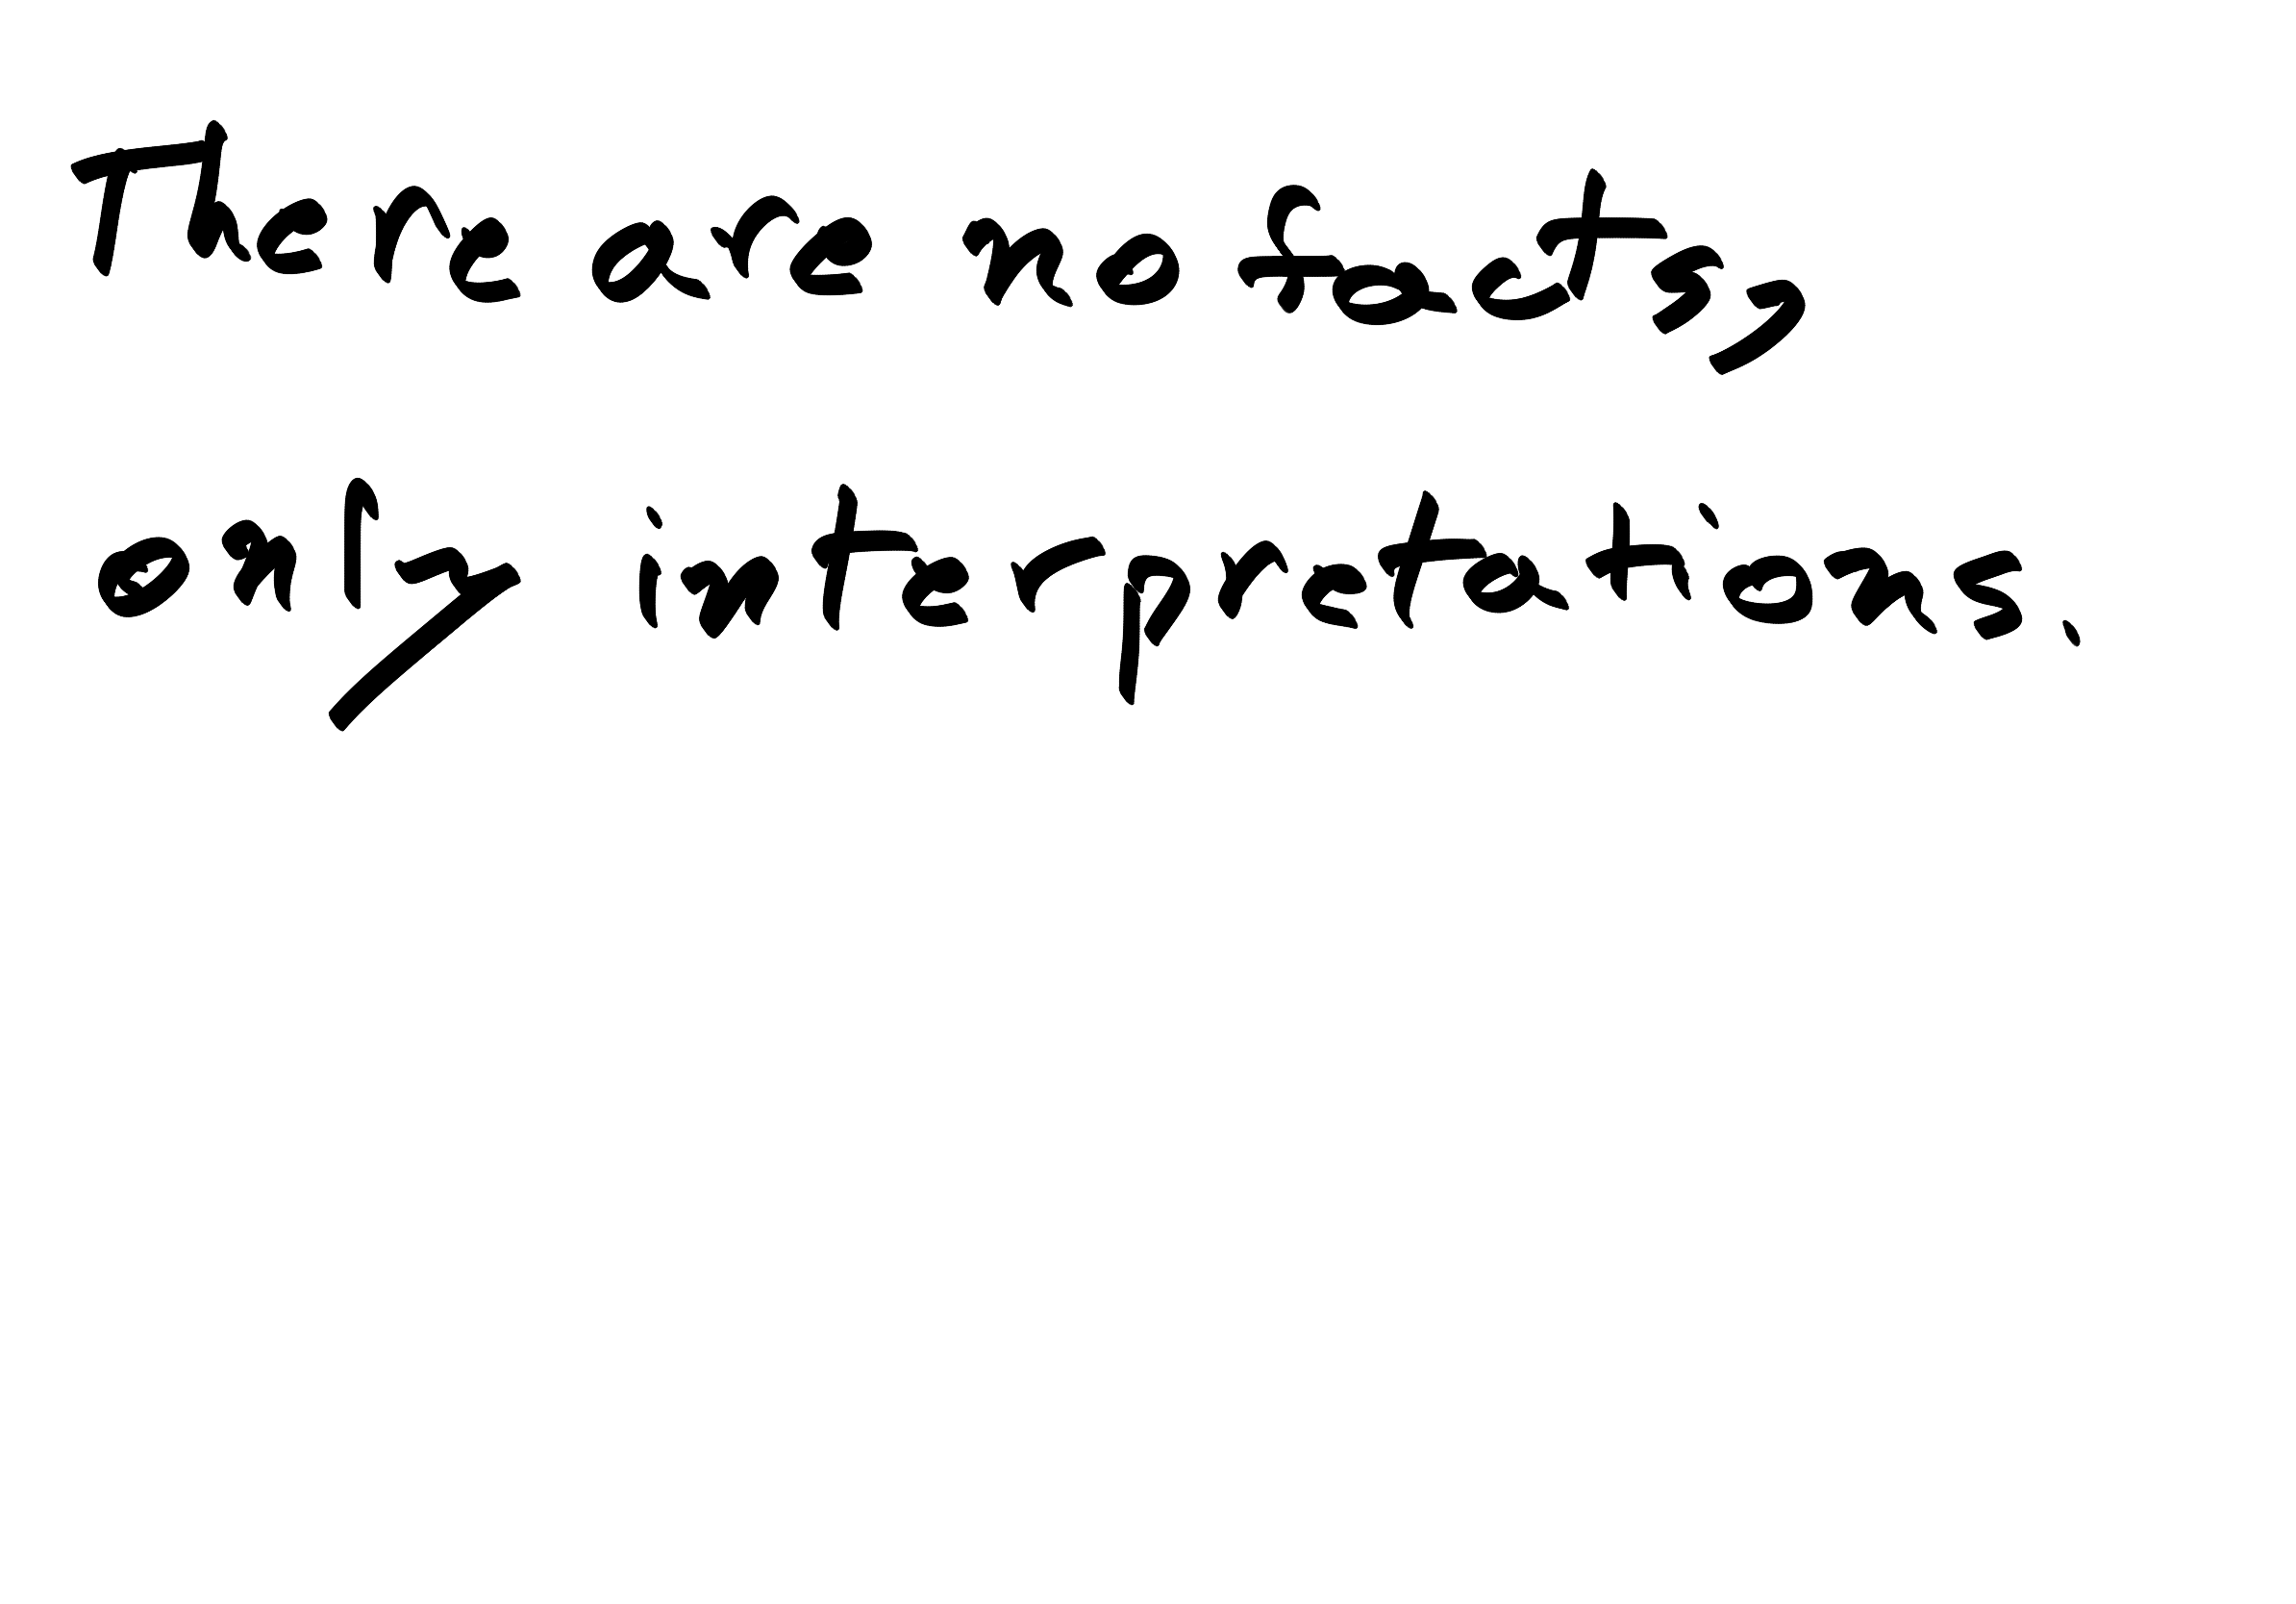 There are no facts,
only interpretations.